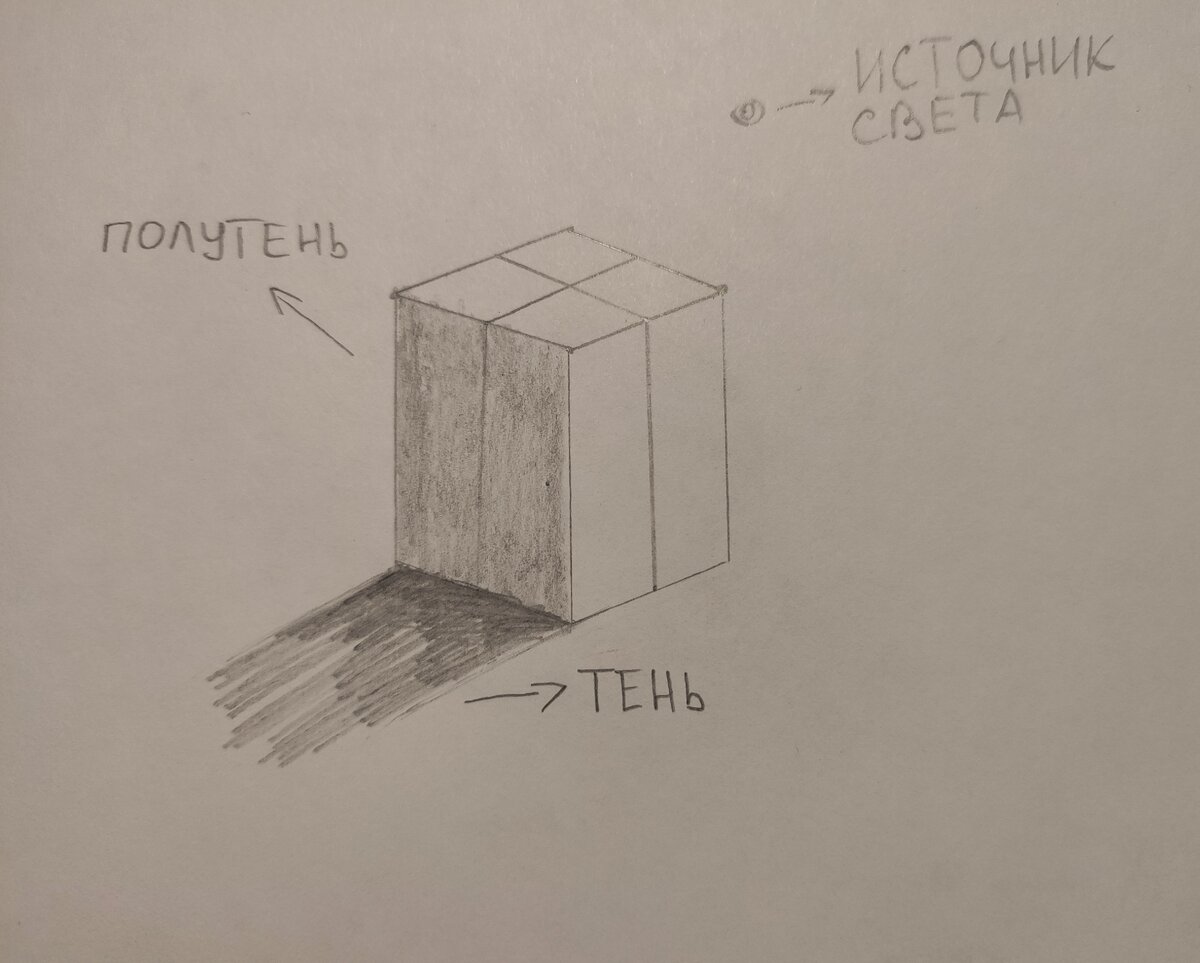 ИСТОЧНИК
СВЕТА
ПОЛУТЕНЬ
ТЕНЬ